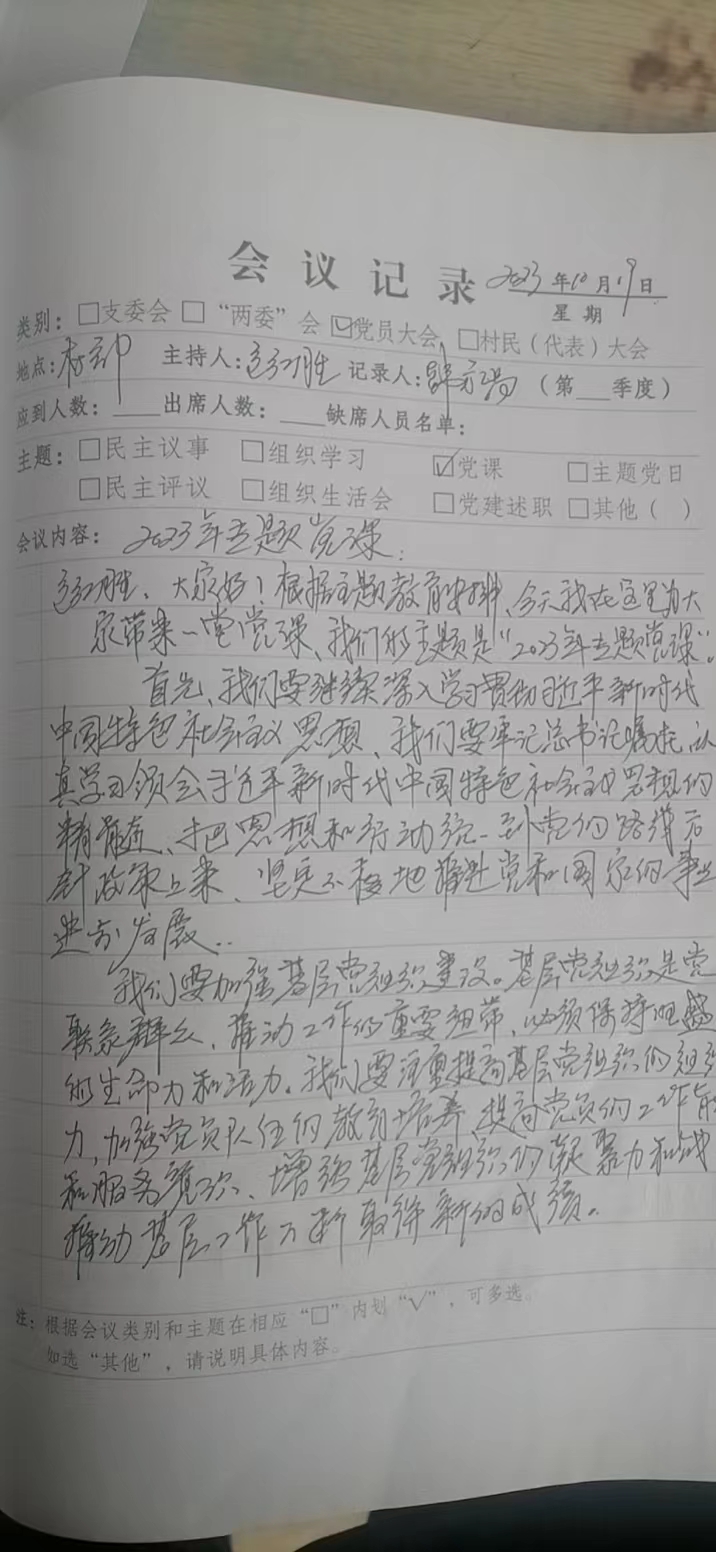 会议记录 2023年10月19日
星期
类别：□支委会 □“两委”会 ☑党员大会 □村民（代表）大会
地点：村部 主持人：胜 记录人： （第__季度）
应到人数：____出席人数：____缺席人员名单：
主题：□民主议事 □组织学习 ☑党课 □主题党日
□民主评议 □组织生活会 □党建述职 □其他（ ）
会议内容：2023年专题党课：
胜、大家好！根据主题教育安排、今天我在这里为大
家带来一堂党课、我们的主题是“2023年专题党课”。
首先、我们要继续深入学习贯彻习近平新时代
中国特色社会主义思想、我们要牢记总书记嘱托，认
真学习领会习近平新时代中国特色社会主义思想的
精髓、把思想和行动统一到党的路线方
针政策上来、坚定不移地推进党和国家的事业
进步发展..
我们要加强基层党组织建设。基层党组织是党
联系群众，推动工作的重要纽带，必须保持旺盛
的生命力和活力。我们要注重提高基层党组织的组织
力，加强党员队伍的教育培养，提高党员的工作能
和服务意识、增强基层党组织的凝聚力和战
推动基层工作不断取得新的成绩。
注：根据会议类别和主题在相应“□”内划“√”，可多选。
如选“其他”，请说明具体内容。